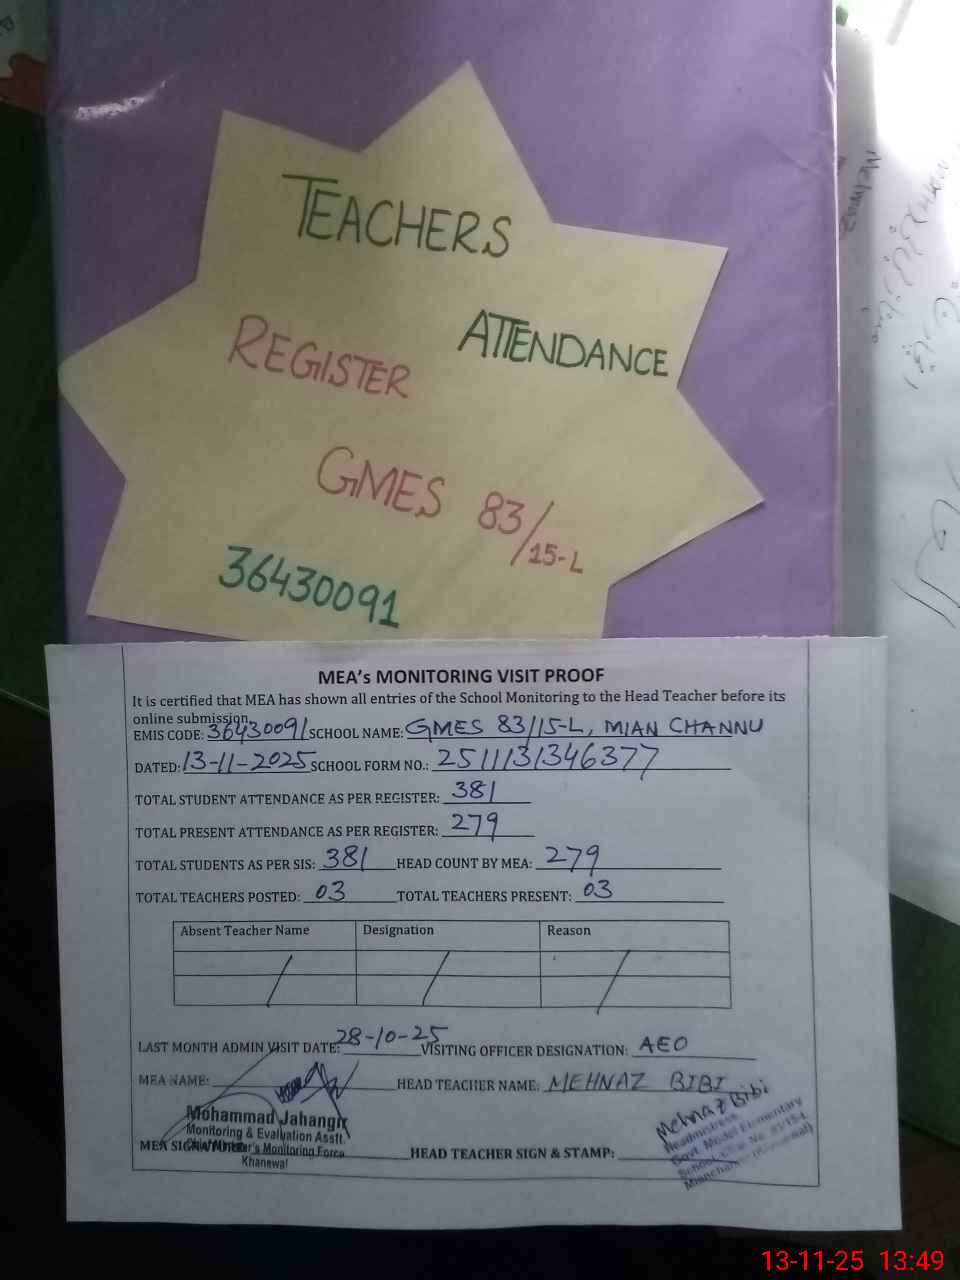 TEACHERS
ATTENDANCE
REGISTER
GMES 83/15-L
36430091
MEA's MONITORING VISIT PROOF
It is certified that MEA has shown all entries of the School Monitoring to the Head Teacher before its
online submission.
EMIS CODE: 36430091 SCHOOL NAME: GMES 83/15-L, MIAN CHANNU
DATED: 13-11-2025 SCHOOL FORM NO.: 2511131346377
TOTAL STUDENT ATTENDANCE AS PER REGISTER: 381
TOTAL PRESENT ATTENDANCE AS PER REGISTER: 279
TOTAL STUDENTS AS PER SIS: 381 HEAD COUNT BY MEA: 279
TOTAL TEACHERS POSTED: 03 TOTAL TEACHERS PRESENT: 03
Absent Teacher Name Designation Reason
LAST MONTH ADMIN VISIT DATE: 28-10-25 VISITING OFFICER DESIGNATION: AEO
MEA NAME: HEAD TEACHER NAME: MEHNAZ BIBI
Mohammad Jahangir
Monitoring & Evaluation Asstt.
Chief Minister's Monitoring Force
Khanewal
MEA SIGNATURE HEAD TEACHER SIGN & STAMP:
Mehnaz Bibi
Headmistress
Govt. Model Elementary
School
Mianchannu (Khanewal)
13-11-25 13:49